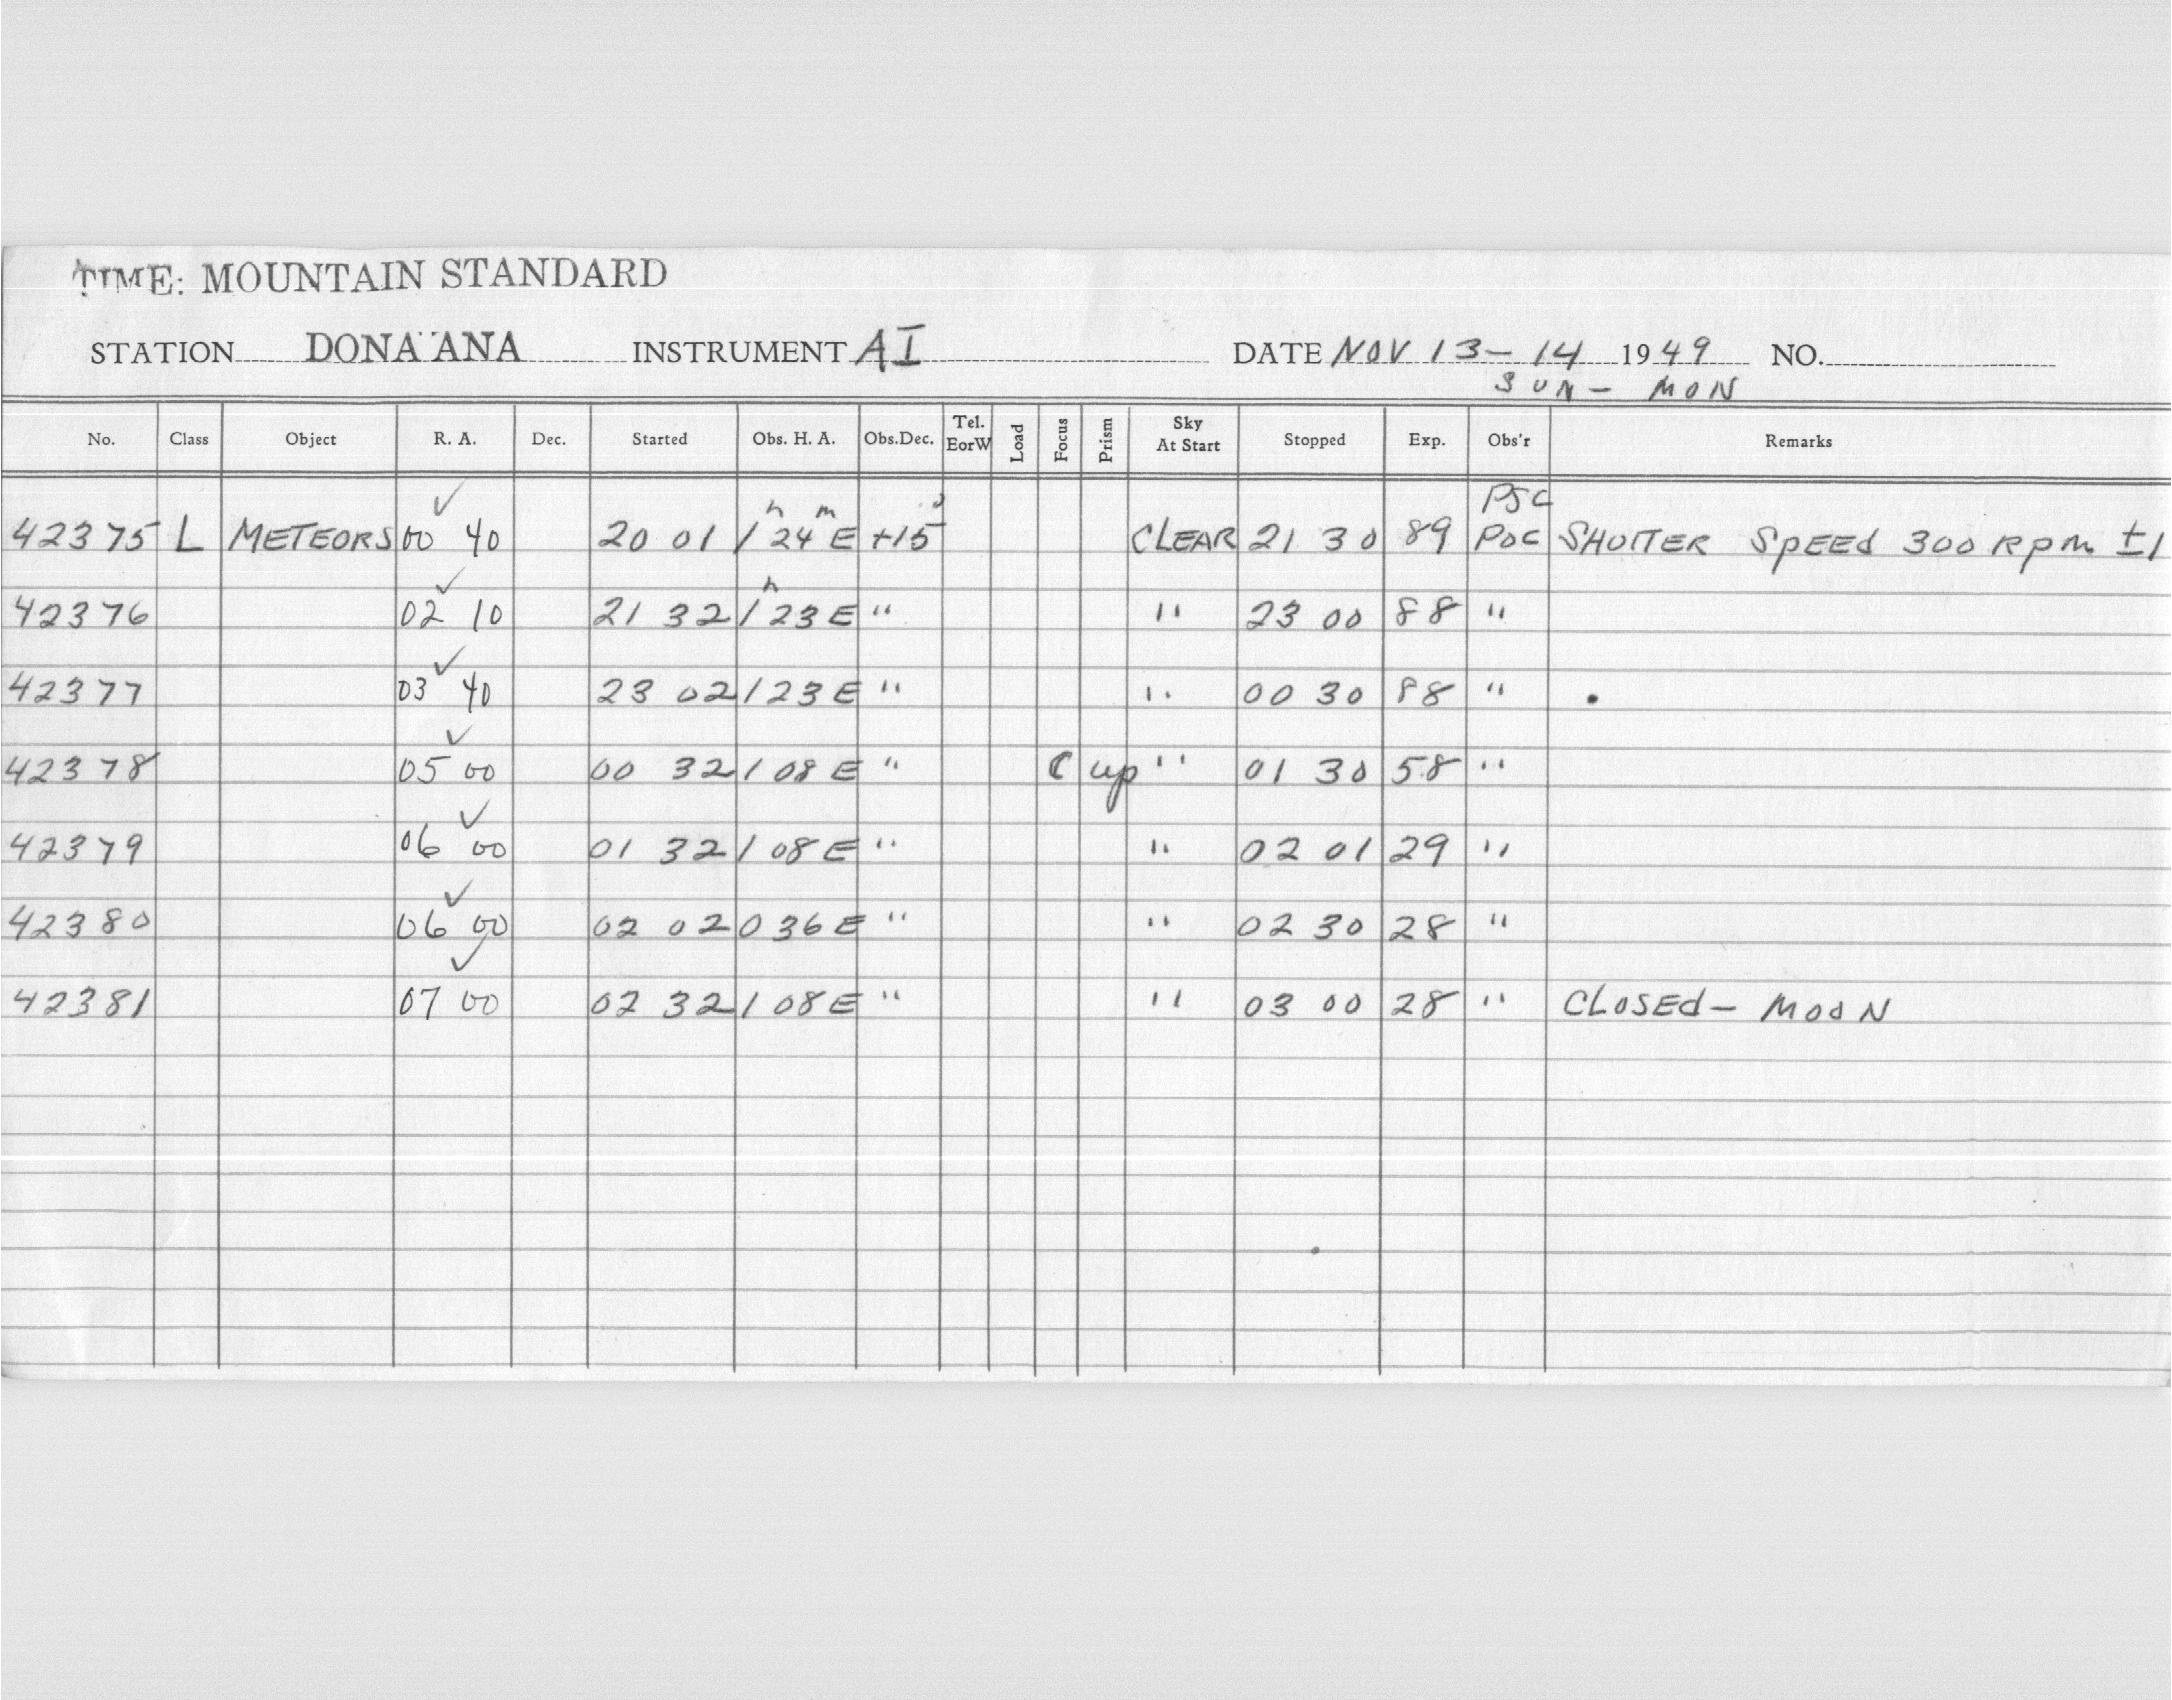 TIME: MOUNTAIN STANDARD
STATION DONA ANA INSTRUMENT AI DATE NOV 13-14 1949 NO.
SUN - MON
No. Class Object R. A. Dec. Started Obs. H. A. Obs.Dec. Tel. EorW Load Focus Prism Sky At Start Stopped Exp. Obs'r Remarks
PJC
42375 L METEORS 00 40 ✓ 20 01 1h 24m E +15° CLEAR 21 30 89 POC SHUTTER SpEEd 300 RpM ±1
42376 02 10 ✓ 21 32 1h 23 E " " 23 00 88 "
42377 03 40 ✓ 23 02 1 23 E " " 00 30 88 "
42378 05 00 ✓ 00 32 1 08 E " ☾ up " 01 30 58 "
42379 06 00 ✓ 01 32 1 08 E " " 02 01 29 "
42380 06 00 ✓ 02 02 0 36 E " " 02 30 28 "
42381 07 00 ✓ 02 32 1 08 E " " 03 00 28 " CLOSEd - MOON